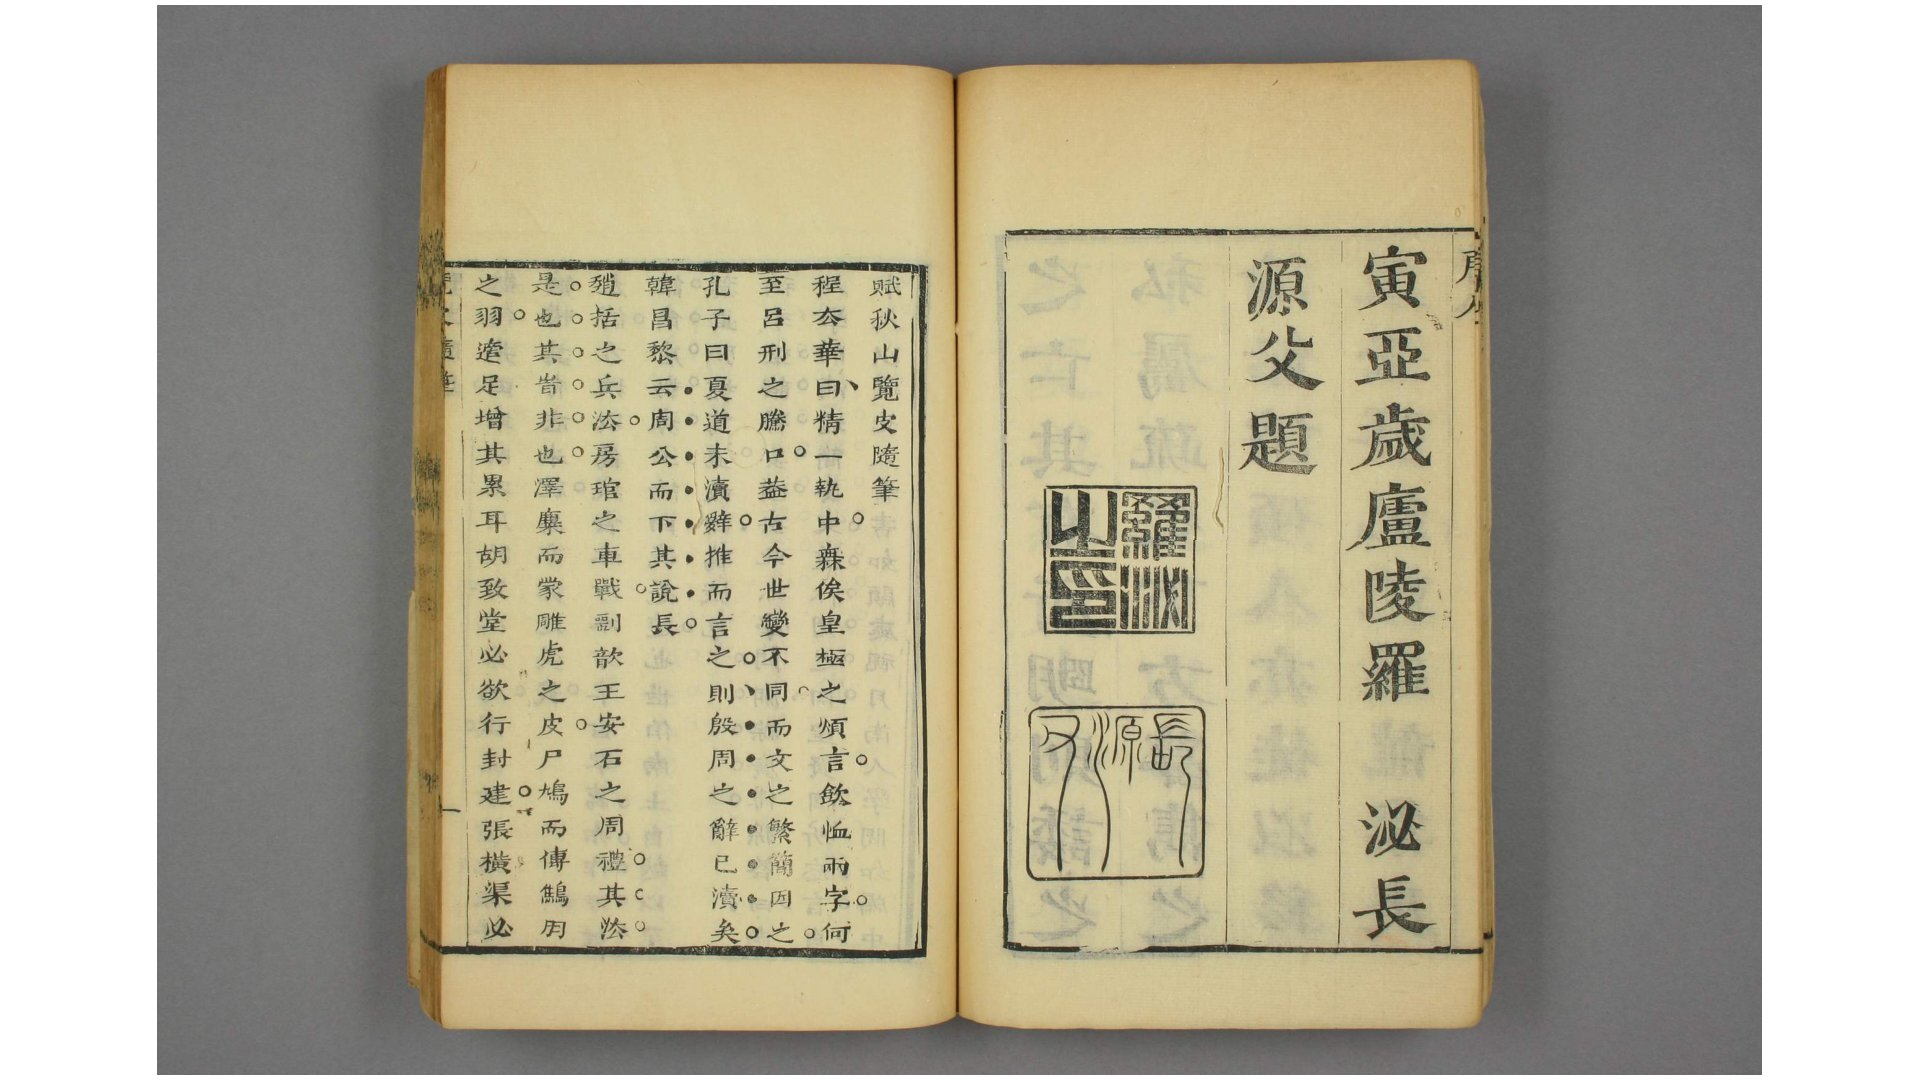 寅亞歲廬陵羅 泌長
源父題
羅泌之印
長源父
賦秋山覽皮隨筆
程太華曰精一執中無俟皇極之煩言欽恤兩字何
至呂刑之騰口葢古今世變不同而文之繁簡因之
孔子曰夏道未瀆辭推而言之則殷周之辭已瀆矣
韓昌黎云周公而下其說長
趙括之兵法房琯之車戰劉歆王安石之周禮其法
是也其耑非也澤麋而蒙雕虎之皮尸鳩而傳鷦用
之羽適足增其累耳胡致堂必欲行封建張橫渠必